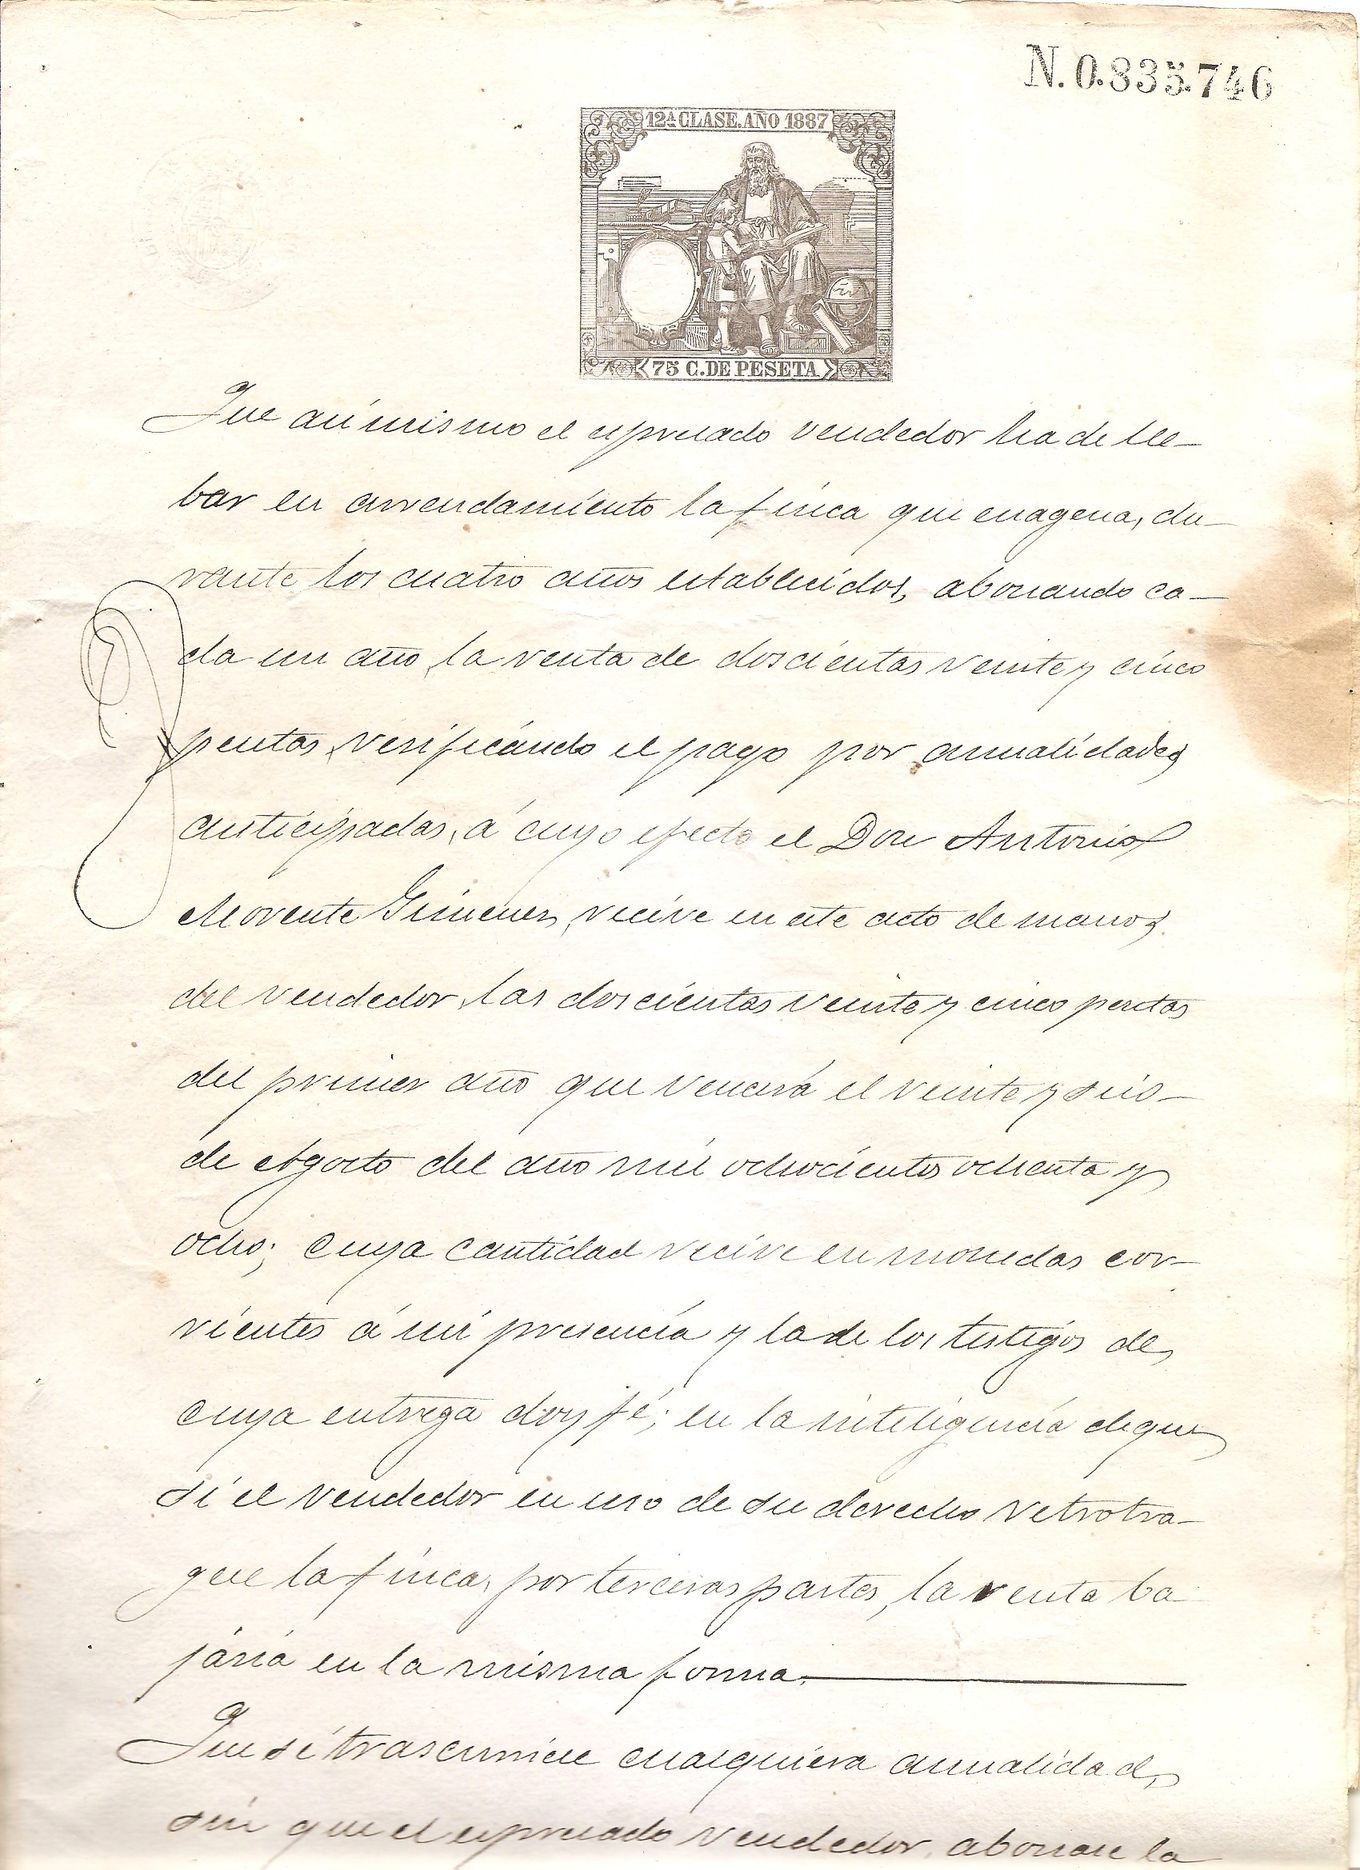 N. 0.835.746
12ª CLASE. AÑO 1887
75 C. DE PESETA
Que asi mismo el espresado vendedor ha de lle-
bar en arrendamiento la finca que enagena, du-
rante los cuatro años establecidos, abonando ca-
da un año, la renta de doscientas veinte y cinco
pesetas, verificando el pago por anualidades
anticipadas, á cuyo efecto el Don Antonio
Morente Gimenez, recive en este acto de manos
del vendedor, las doscientas veinte y cinco pesetas
del primer año que vencerá el veinte y seis-
de Agosto del año mil ochocientos ochenta y
ocho; cuya cantidad recive en monedas cor-
rientes á mi presencia y la de los testigos de
cuya entrega doy fé; en la inteligencia de que
si el vendedor en uso de su derecho retrotra-
gue la finca, por terceras partes, la renta ba
jaria en la misma forma.
Que si trascurriere cualquiera anualidad,
sin que el espresado vendedor, abonase la